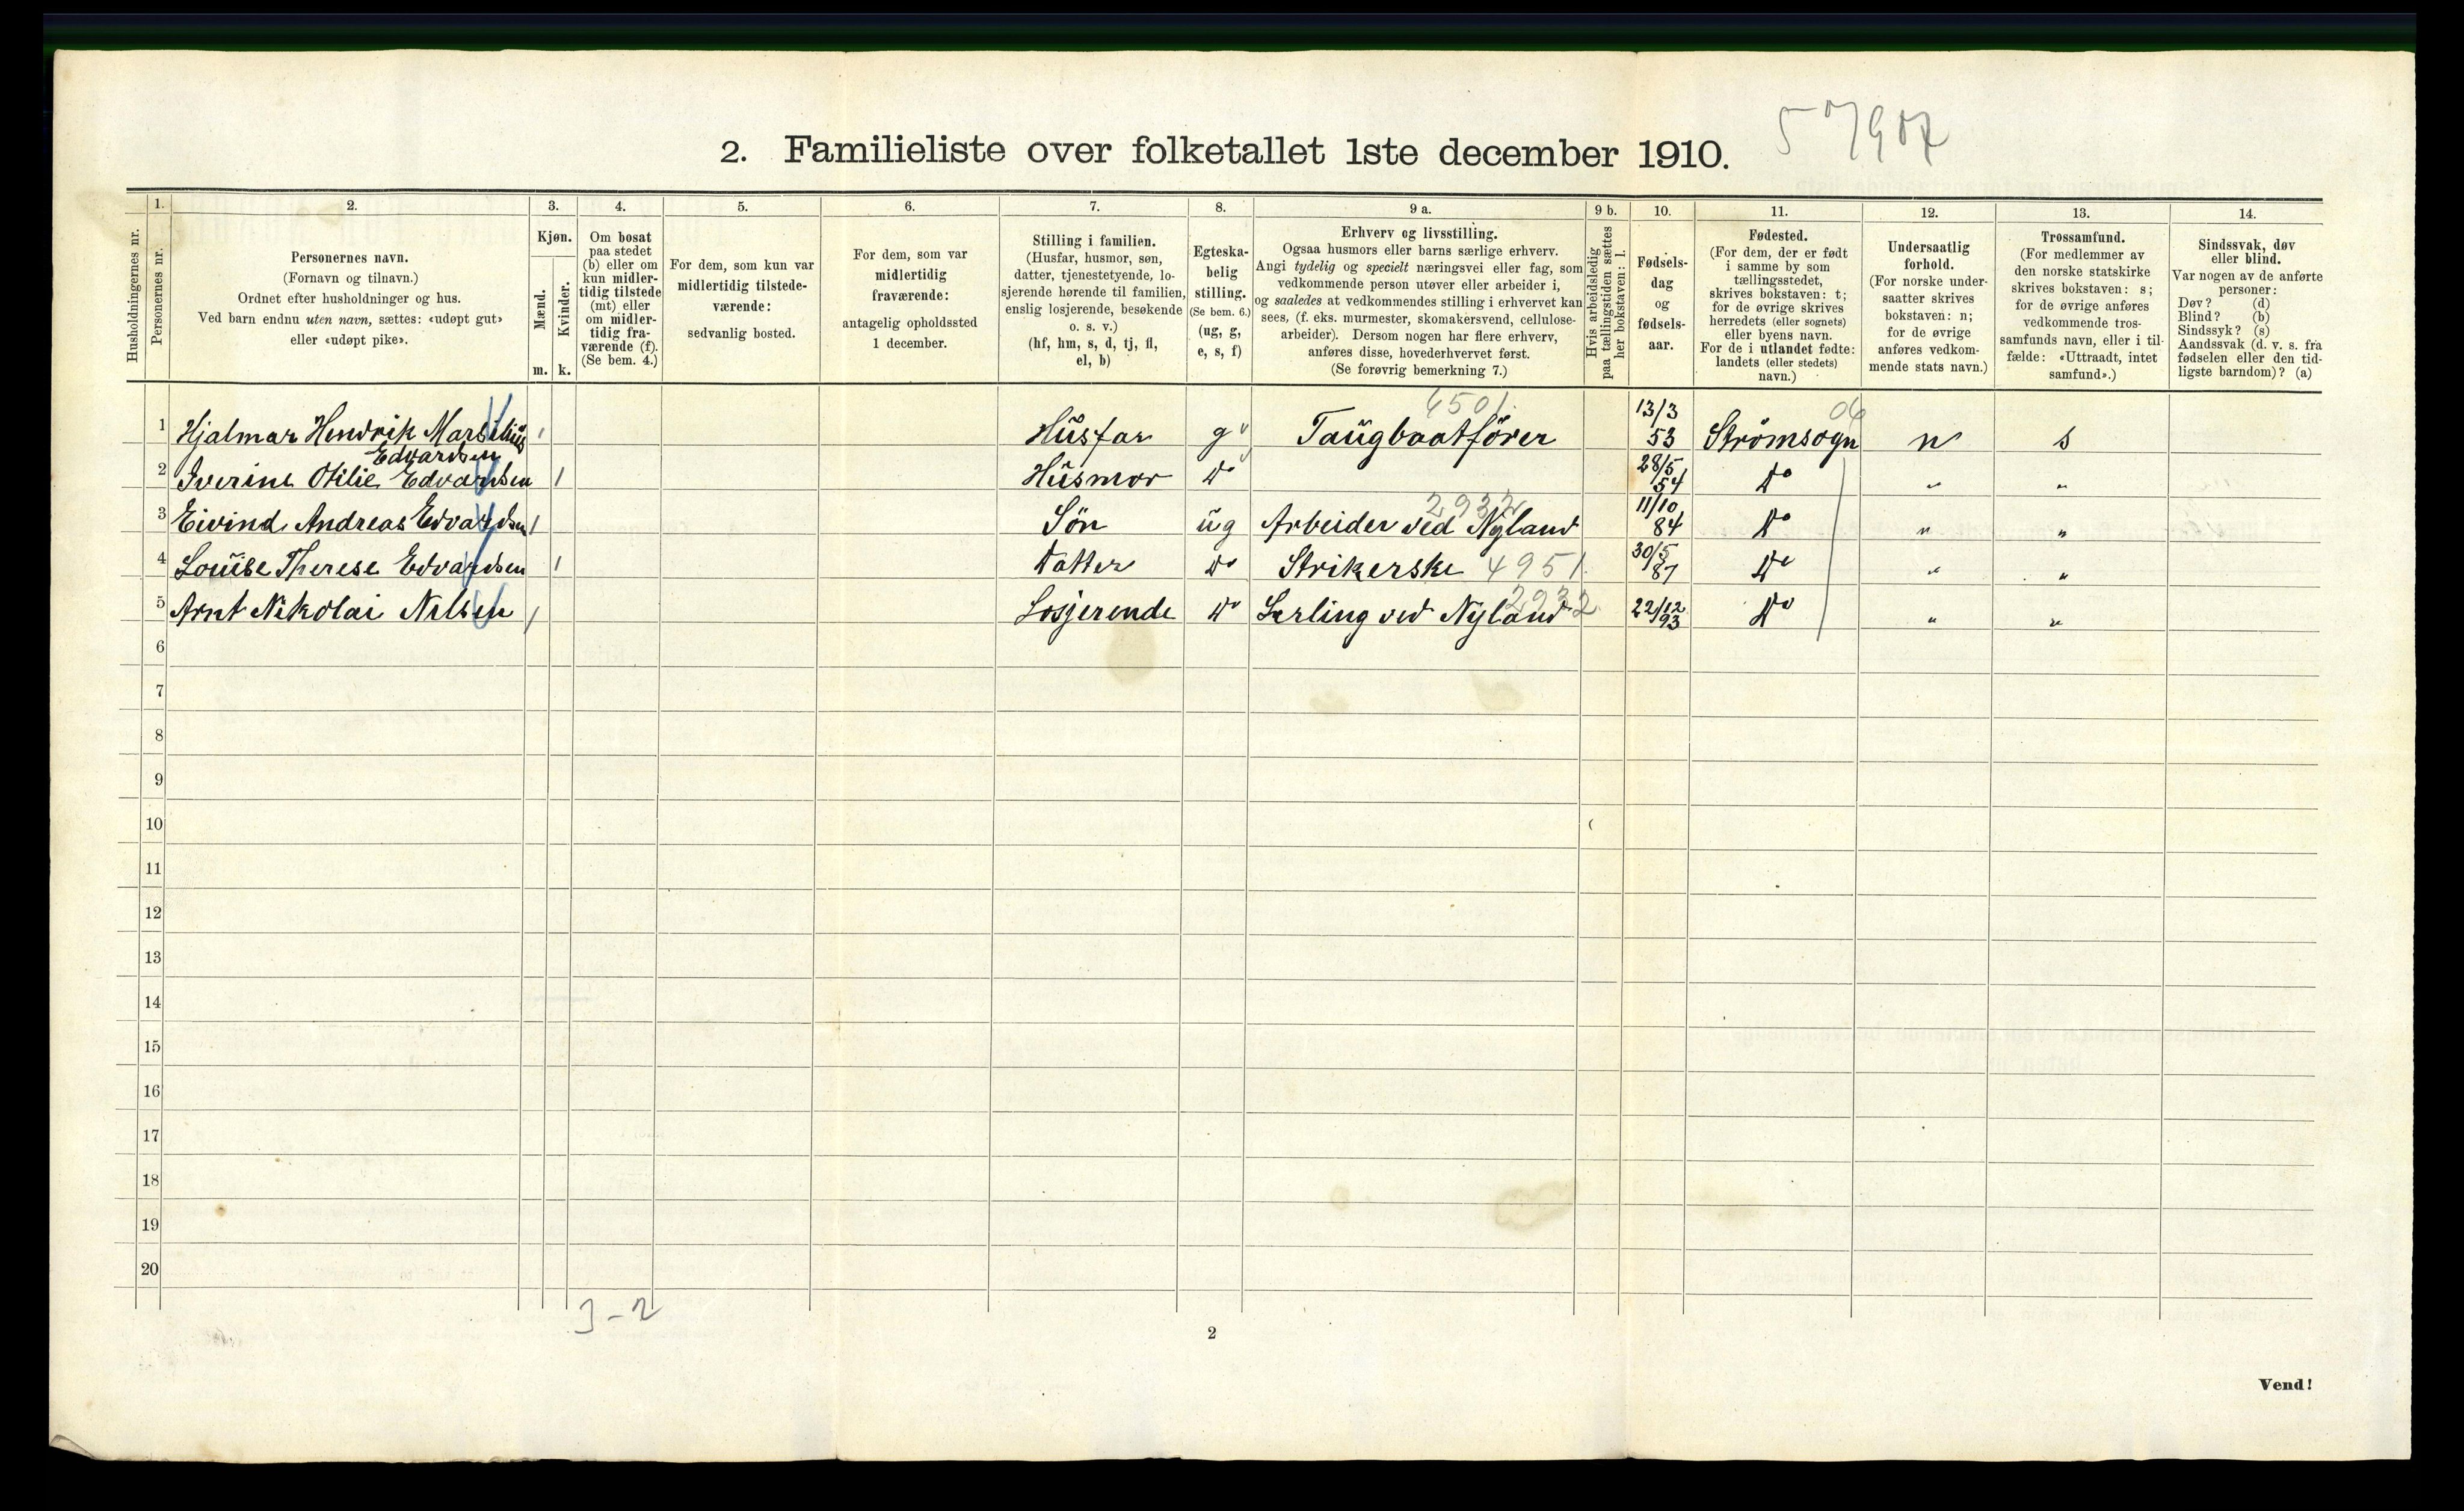 2. Familieliste over folketallet 1ste december 1910.
57907
1. 2. 3. 4. 5. 6. 7. 8. 9 a. 9 b. 10. 11. 12. 13. 14.
Husholdningernes nr.
Personernes nr.
Personernes navn.
(Fornavn og tilnavn.)
Ordnet efter husholdninger og hus.
Ved barn endnu uten navn, sættes: «udøpt gut»
eller «udøpt pike».
Kjøn.
Mænd.
Kvinder.
m. k.
Om bosat
paa stedet
(b) eller om
kun midler-
tidig tilstede
(mt) eller
om midler-
tidig fra-
værende (f).
(Se bem. 4.)
For dem, som kun var
midlertidig tilstede-
værende:
sedvanlig bosted.
For dem, som var
midlertidig
fraværende:
antagelig opholdssted
1 december.
Stilling i familien.
(Husfar, husmor, søn,
datter, tjenestetyende, lo-
sjerende hørende til familien,
enslig losjerende, besøkende
o. s. v.)
(hf, hm, s, d, tj, fl,
el, b)
Egteska-
belig
stilling.
(Se bem. 6.)
(ug, g,
e, s, f)
Erhverv og livsstilling.
Ogsaa husmors eller barns særlige erhverv.
Angi tydelig og specielt næringsvei eller fag, som
vedkommende person utøver eller arbeider i,
og saaledes at vedkommendes stilling i erhvervet kan
sees, (f. eks. murmester, skomakersvend, cellulose-
arbeider). Dersom nogen har flere erhverv,
anføres disse, hovederhvervet først.
(Se forøvrig bemerkning 7.)
Hvis arbeidsledig
paa tællingstiden sættes
her bokstaven: l.
Fødsels-
dag
og
fødsels-
aar.
Fødested.
(For dem, der er født
i samme by som
tællingsstedet,
skrives bokstaven: t;
for de øvrige skrives
herredets (eller sognets)
eller byens navn.
For de i utlandet fødte:
landets (eller stedets)
navn.)
Undersaatlig
forhold.
(For norske under-
saatter skrives
bokstaven: n;
for de øvrige
anføres vedkom-
mende stats navn.)
Trossamfund.
(For medlemmer av
den norske statskirke
skrives bokstaven: s;
for de øvrige anføres
vedkommende tros-
samfunds navn, eller i til-
fælde: «Uttraadt, intet
samfund».)
Sindssvak, døv
eller blind.
Var nogen av de anførte
personer:
Døv? (d)
Blind? (b)
Sindssyk? (s)
Aandssvak (d. v. s. fra
fødselen eller den tid-
ligste barndom)? (a)
6501. 06
1 Hjalmar Hendrik Marselius Edvardsen 1 Husfar g Taugbaatfører 13/3 53 Strømsogn n s
2 Iverine Otilie Edvardsen 1 Husmor Do 28/5 54 Do " "
2932
3 Eivind Andreas Edvardsen 1 Søn ug Arbeider ved Nyland 11/10 84 Do " "
4 Louise Therese Edvardsen 1 Datter Do Strikerske 4951. 30/5 87 Do " "
2932
5 Arnt Nikolai Nilsen 1 Losjerende Do Lærling ved Nyland 22/12 93 Do " "
6
7
8
9
10
11
12
13
14
15
16
17
18
19
20
3-2
2
Vend!